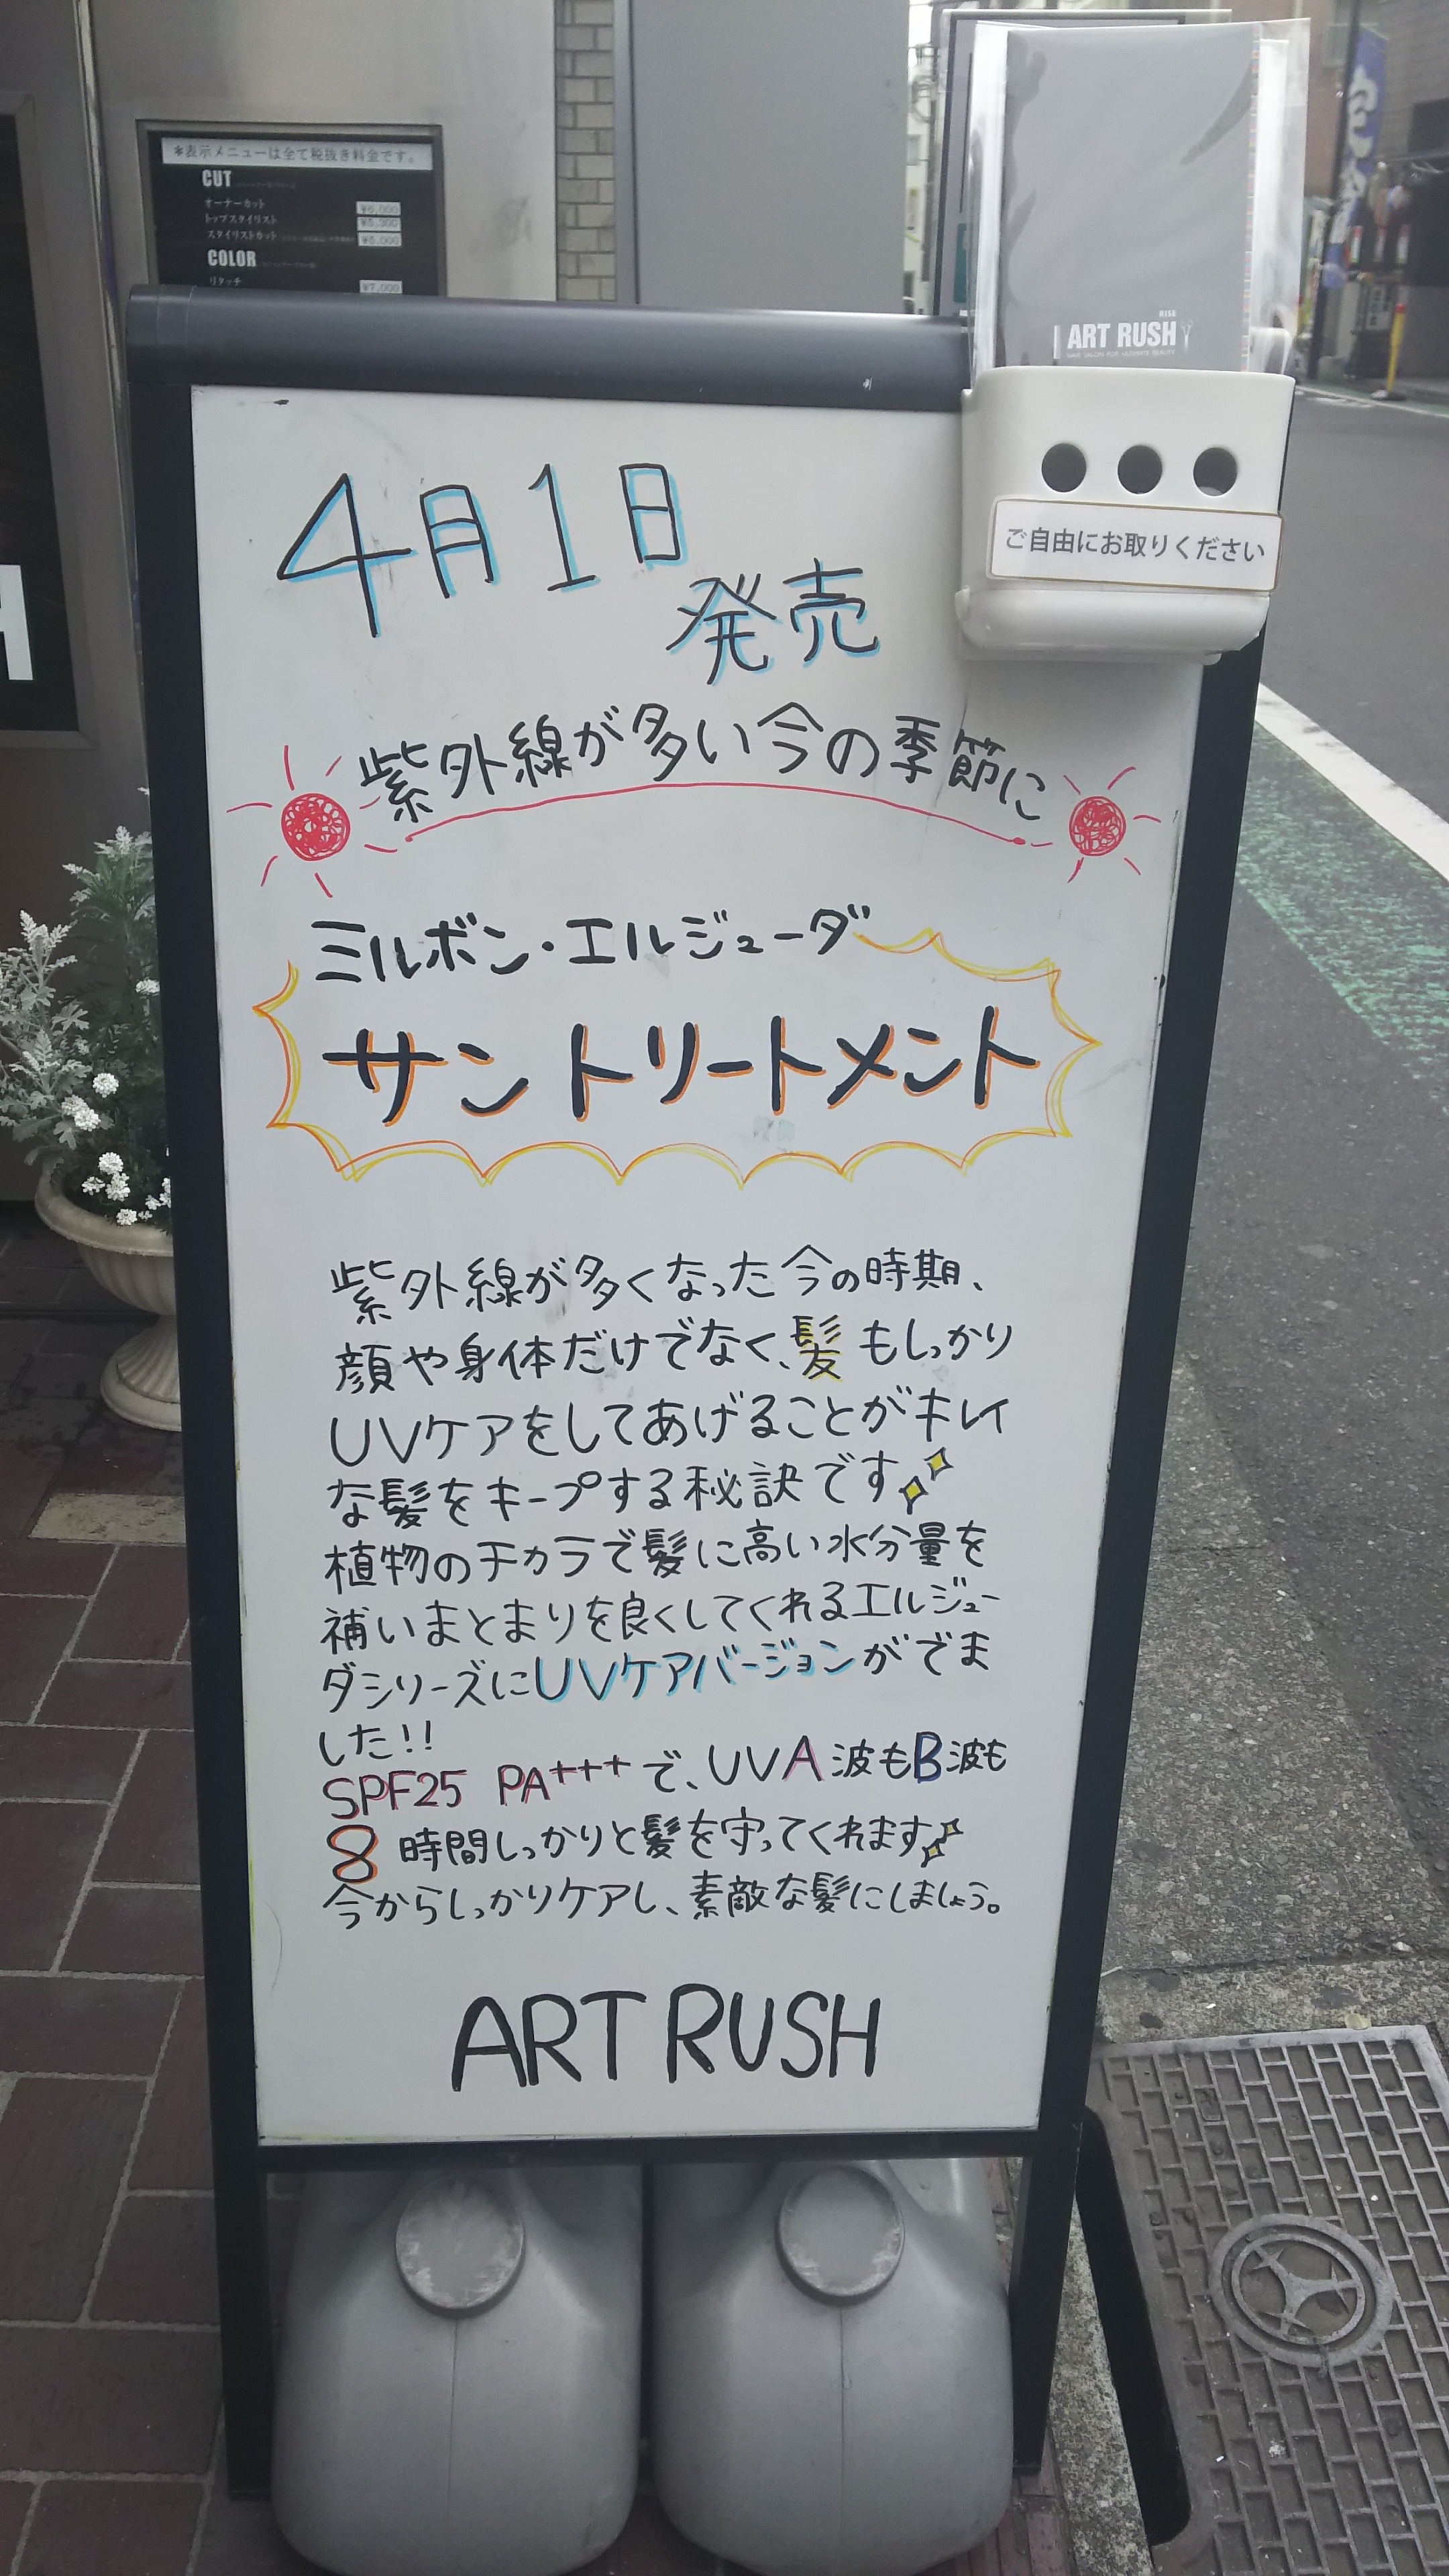 *表示メニューは全て税抜き料金です。
CUT
オーナーカット ¥6,000
トップスタイリスト ¥5,300
スタイリストカット ¥5,000
COLOR
リタッチ ¥7,000
RISE
ART RUSH
HAIR SALON FOR ULTIMATE BEAUTY
ご自由にお取りください
4月1日
発売
紫外線が多い今の季節に
ミルボン・エルジューダ
サントリートメント
紫外線が多くなった今の時期、
顔や身体だけでなく、髪もしっかり
UVケアをしてあげることがキレイ
な髪をキープする秘訣です
植物のチカラで髪に高い水分量を
補いまとまりを良くしてくれるエルジュー
ダシリーズにUVケアバージョンがでま
した!!
SPF25 PA+++で、UVA波もB波も
8時間しっかりと髪を守ってくれます
今からしっかりケアし、素敵な髪にしましょう。
ART RUSH